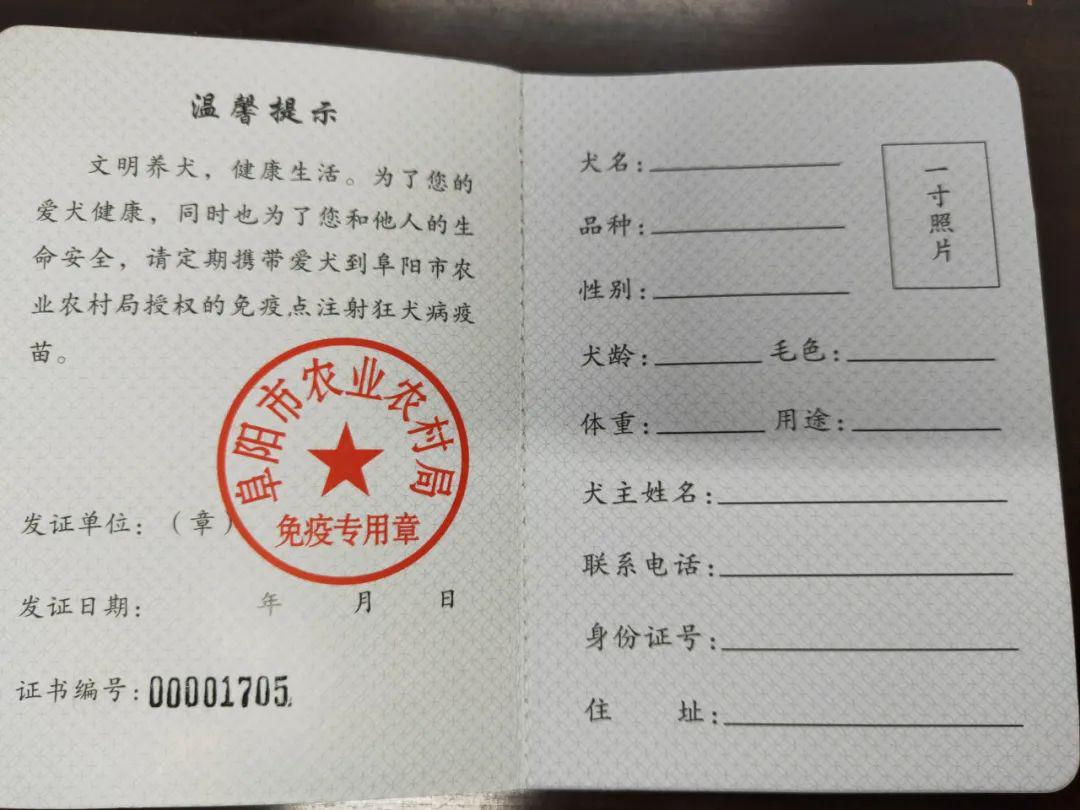 温馨提示
文明养犬，健康生活。为了您的
爱犬健康，同时也为了您和他人的生
命安全，请定期携带爱犬到阜阳市农
业农村局授权的免疫点注射狂犬病疫
苗。
阜阳市农业农村局
免疫专用章
发证单位：（章）
发证日期： 年 月 日
证书编号：00001705
一寸照片
犬名：
品种：
性别：
犬龄： 毛色：
体重： 用途：
犬主姓名：
联系电话：
身份证号：
住 址：